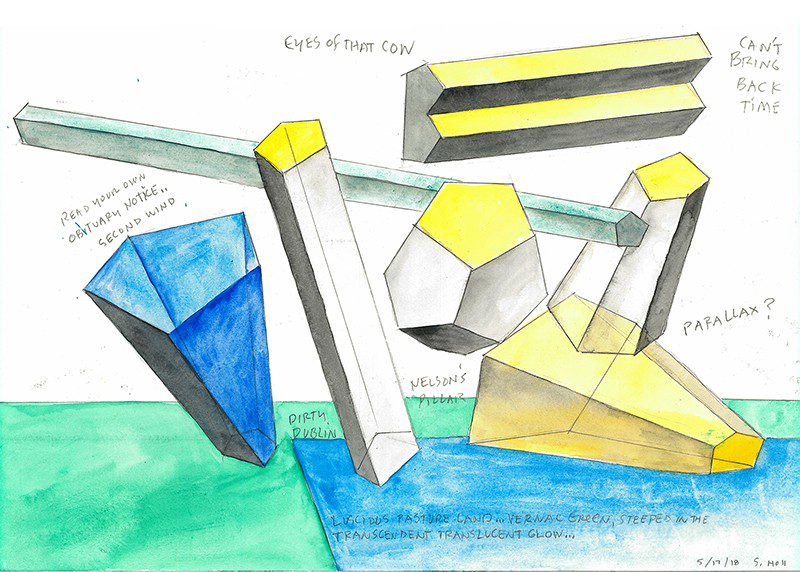 EYES OF THAT COW
CAN'T
BRING
BACK
TIME
READ YOUR OWN
OBITUARY NOTICE..
SECOND WIND
PARALLAX?
NELSON'S
PILLAR
DIRTY
DUBLIN
LUSCIOUS PASTURE LAND... VERNAL GREEN, STEEPED IN THE
TRANSCENDENT TRANSLUCENT GLOW...
5/17/18 S. Moll